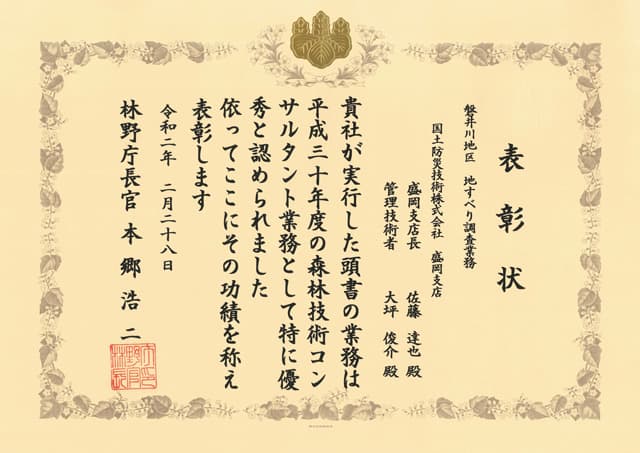 表彰状
磐井川地区 地すべり調査業務
国土防災技術株式会社 盛岡支店
盛岡支店長 佐藤 達也 殿
管理技術者 大坪 俊介 殿
貴社が実行した頭書の業務は
平成三十年度の森林技術コン
サルタント業務として特に優
秀と認められました
依ってここにその功績を称え
表彰します
令和二年 二月二十八日
林野庁長官 本郷浩二